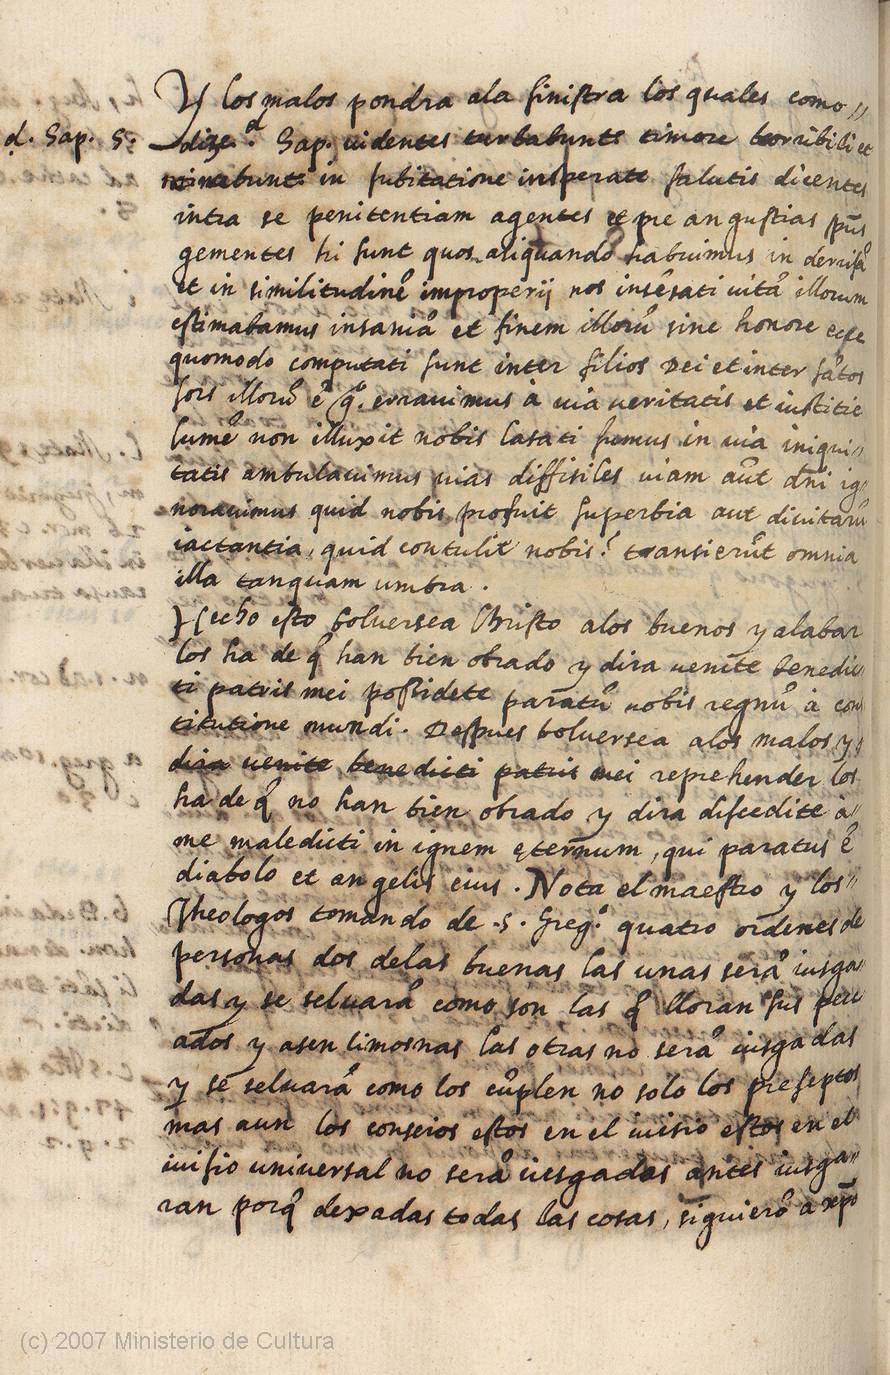 Y los malos pondra ala siniestra los quales como //
d. Sap. 5. dize d Sap. uidentes turbabunts timore horribili et
mirabunts in subitatione insperate salutis dicentes
intra se penitentiam agentes et pre angustias spũs
gementes hi sunt quos aliquando habuimus in derrisũ
et in similitudinẽ improperij nos insẽsati uitã illorum
estimabamus insaniã et finem illorũ sine honore ecçe
quomodo computati sunt inter filios Dei et inter sãtos
sors illorũ ẽ q̃. erravimus à uia veritatis et iustitie
lumẽ non illuxit nobis lasati sumus in uia iniqui//
tatis ambulavimus vias difficiles viam aũt dñi ig//
noravimus quid nobis profuit superbia aut divitarũ
iactantia, quid contulit nobis? transierũt omnia
illa tanquam umbra.
Hecho esto bolversea Christo alos buenos y alabar
los ha de q̃ han bien obrado y dira venite benedic//
ti patris mei possidete paratũ uobis regnũ à con
titutione mundi. Despues bolversea alos malos y //
dira venite benedicti patris mei reprehender los
ha de q̃ no han bien obrado y dira discedite à //
me maledicti in ignem ęternum, qui paratus ẽ
diabolo et angelis eius. Nota el maestro y los //
Theologos tomando de .S. Greg.º quatro ordenes de
personas dos delas buenas las unas serã iusga//
das y se selvarã como son las q̃ lloran sus pecc
ados y asen limosnas las otras no serã iusgadas
y se selvarã como los cũplen no solo los preseptos
mas aun los conseios estos en el iuisio estos en el
iuisio universal no serã iusgadas antes iusga//
ran porq̃ dexadas todas las cosas, siguierõ a xp̃o
(c) 2007 Ministerio de Cultura